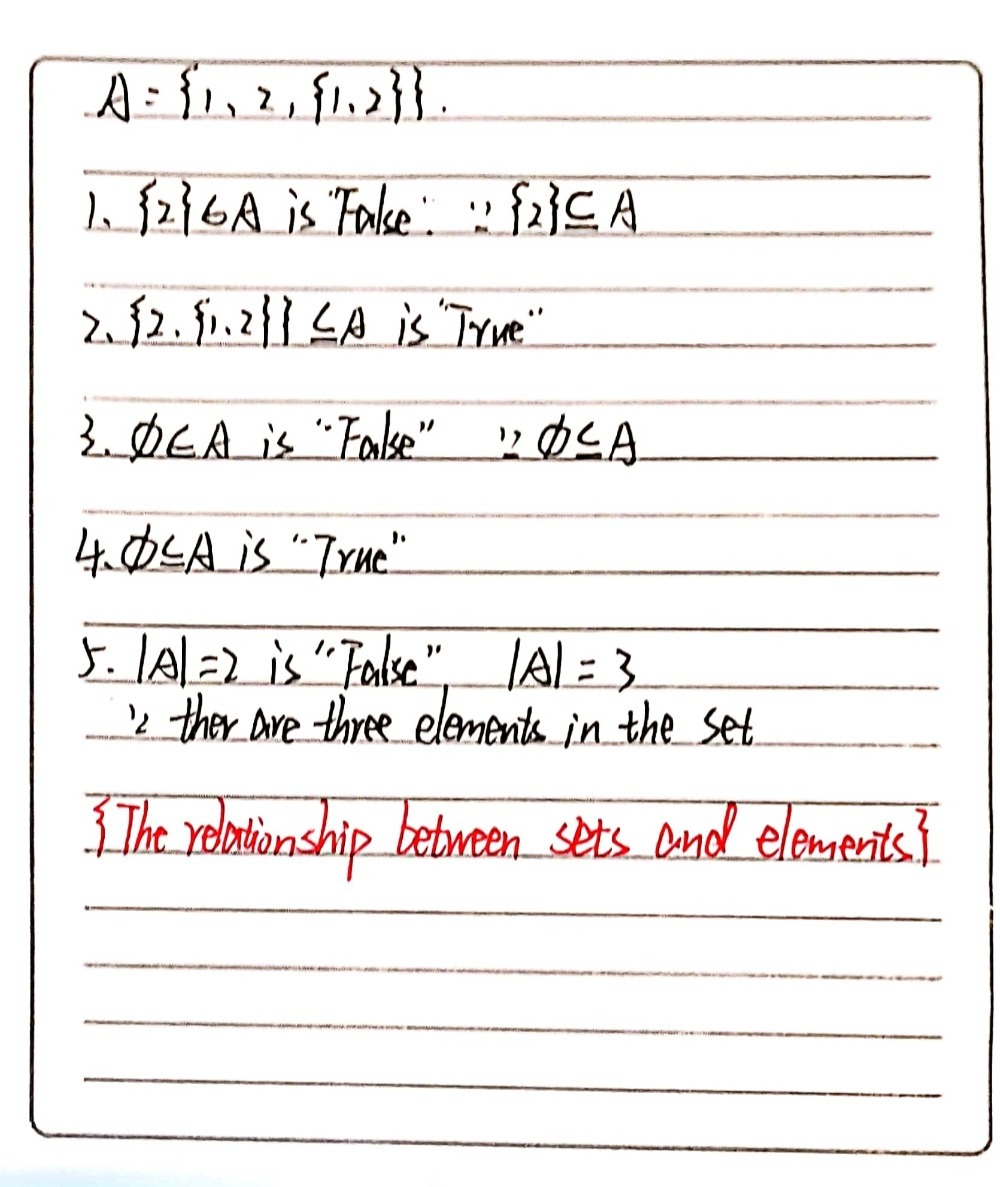 A = {1、2, {1.2}}.
1、{2}∈A is "False". ∵ {2}⊆A
2、{2.{1.2}} ⊆A is "True"
3. ∅∈A is "False" ∵ ∅⊆A
4.∅⊆A is "True"
5. |A|=2 is "False", |A| = 3
∵ ther are three elements in the set
{The relationship between sets and elements}